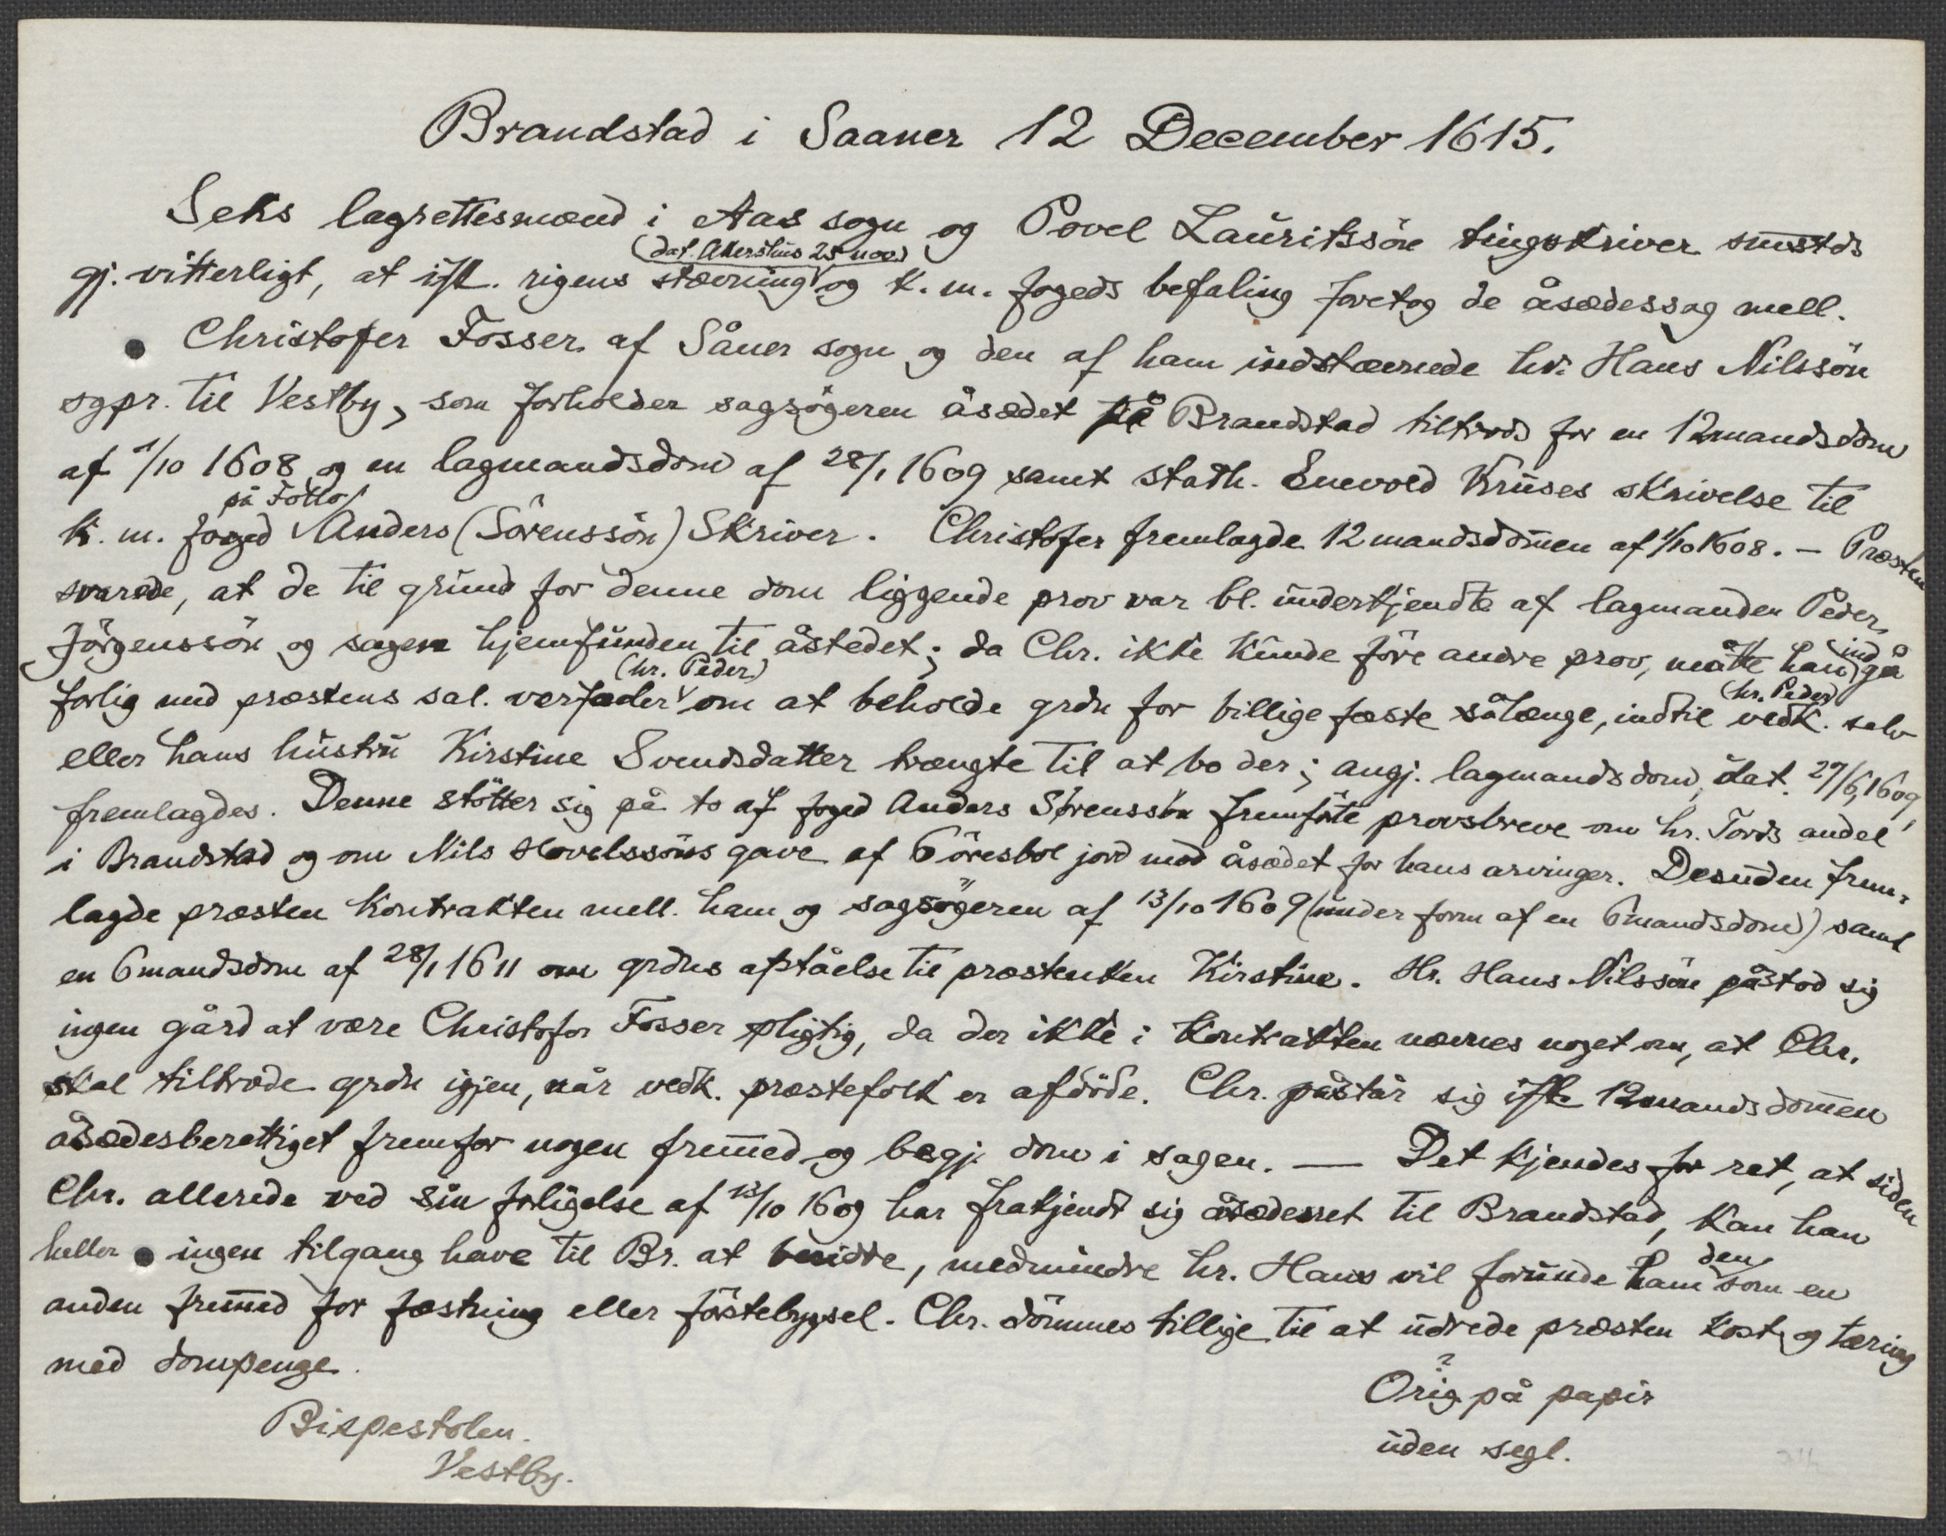 Brandstad i Saaner 12 December 1615.
Seks lagrettesmænd i Aas sogn og Povel Lauritssöre tingskriver smstds
(dat. Akershus 25 nov.)
gj. vitterligt, at ifl. rigens stævning og k. m. fogeds befaling foretog de åsædessag mell.
Christofer Fosser af Såner sogn og den af ham indstævnede hr. Hans Nilssön
sgpr. til Vestby, som forholder sagsögeren åsædet på Brandstad tiltrods for en 12mandsdom
af 1/10 1608 og en lagmandsdom af 28/1 1609 samt stath. Enevold Kruses skrivelse til
på Follo
k. m. foged Anders (Sörenssön) Skriver. Christofer fremlagde 12mandsdommen af 1/10 1608. — Præsten
svarede, at de til grund for denne dom liggende prov var bl. underkjendte af lagmanden Peder
Jörgenssön og sagen hjemfunden til åstedet; da Chr. ikke kunde före andre prov, måtte han indgå
(hr. Peder) (hr. Peder)
forlig med præstens sal. værfader om at beholde grdn for billige fæste sålænge, indtil vedk. selv
eller hans hustru Kirstine Svendsdatter trængte til at bo der; angj. lagmandsdom, dat. 27/6, 1609,
fremlagdes. Denne stötter sig på to af foged Anders Sørenssön fremförte provsbreve om hr. Tords andel
i Brandstad og om Nils Hovelssöns gave af Göresbol jord mod åsædet for hans arvinger. Desuden frem-
lagde præsten kontrakten mell. ham og sagsögeren af 13/10 1609 (under form af en 6mandsdom) samt
en 6mandsdom af 28/1 1611 om grdns afståelse til præstenken Kirstine. Hr. Hans Nilssön påstod sig
ingen gård at være Christofer Fosser pligtig, da der ikke i kontrakten nævnes noget om, at Chr.
skal tiltræde grdn igjen, når vedk. præstefolk er afdöde. Chr. påstår sig ifl. 12mandsdommen
åsædesberettiget fremfor nogen fremmed og begj. dom i sagen. — Det kjendes for ret, at siden
Chr. allerede ved sin forligelse af 13/10 1609 har frakjendt sig åsædesret til Brandstad, kan han
heller ingen tilgang have til Br. at besidde, medmindre hr. Hans vil forunde ham den som en
anden fremmed for fæstning eller förstebygsel. Chr. dömmes tillige til at udrede præsten kost og tæring
med dompenge.
Bispestolen.
Vestby.
?
Orig. på papir
uden segl.